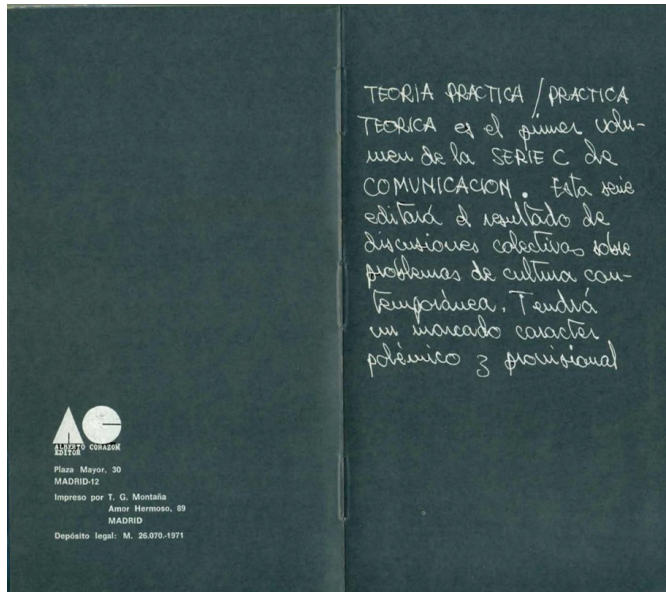 ALBERTO CORAZON
EDITOR
Plaza Mayor, 30
MADRID-12
Impreso por T. G. Montaña
Amor Hermoso, 89
MADRID
Depósito legal: M. 26.070.-1971
TEORIA PRACTICA / PRACTICA
TEORICA es el primer volu-
men de la SERIE C de
COMUNICACION. Esta serie
editará el resultado de
discusiones colectivas sobre
problemas de cultura con-
temporánea. Tendrá
un marcado caracter
polémico y provisional